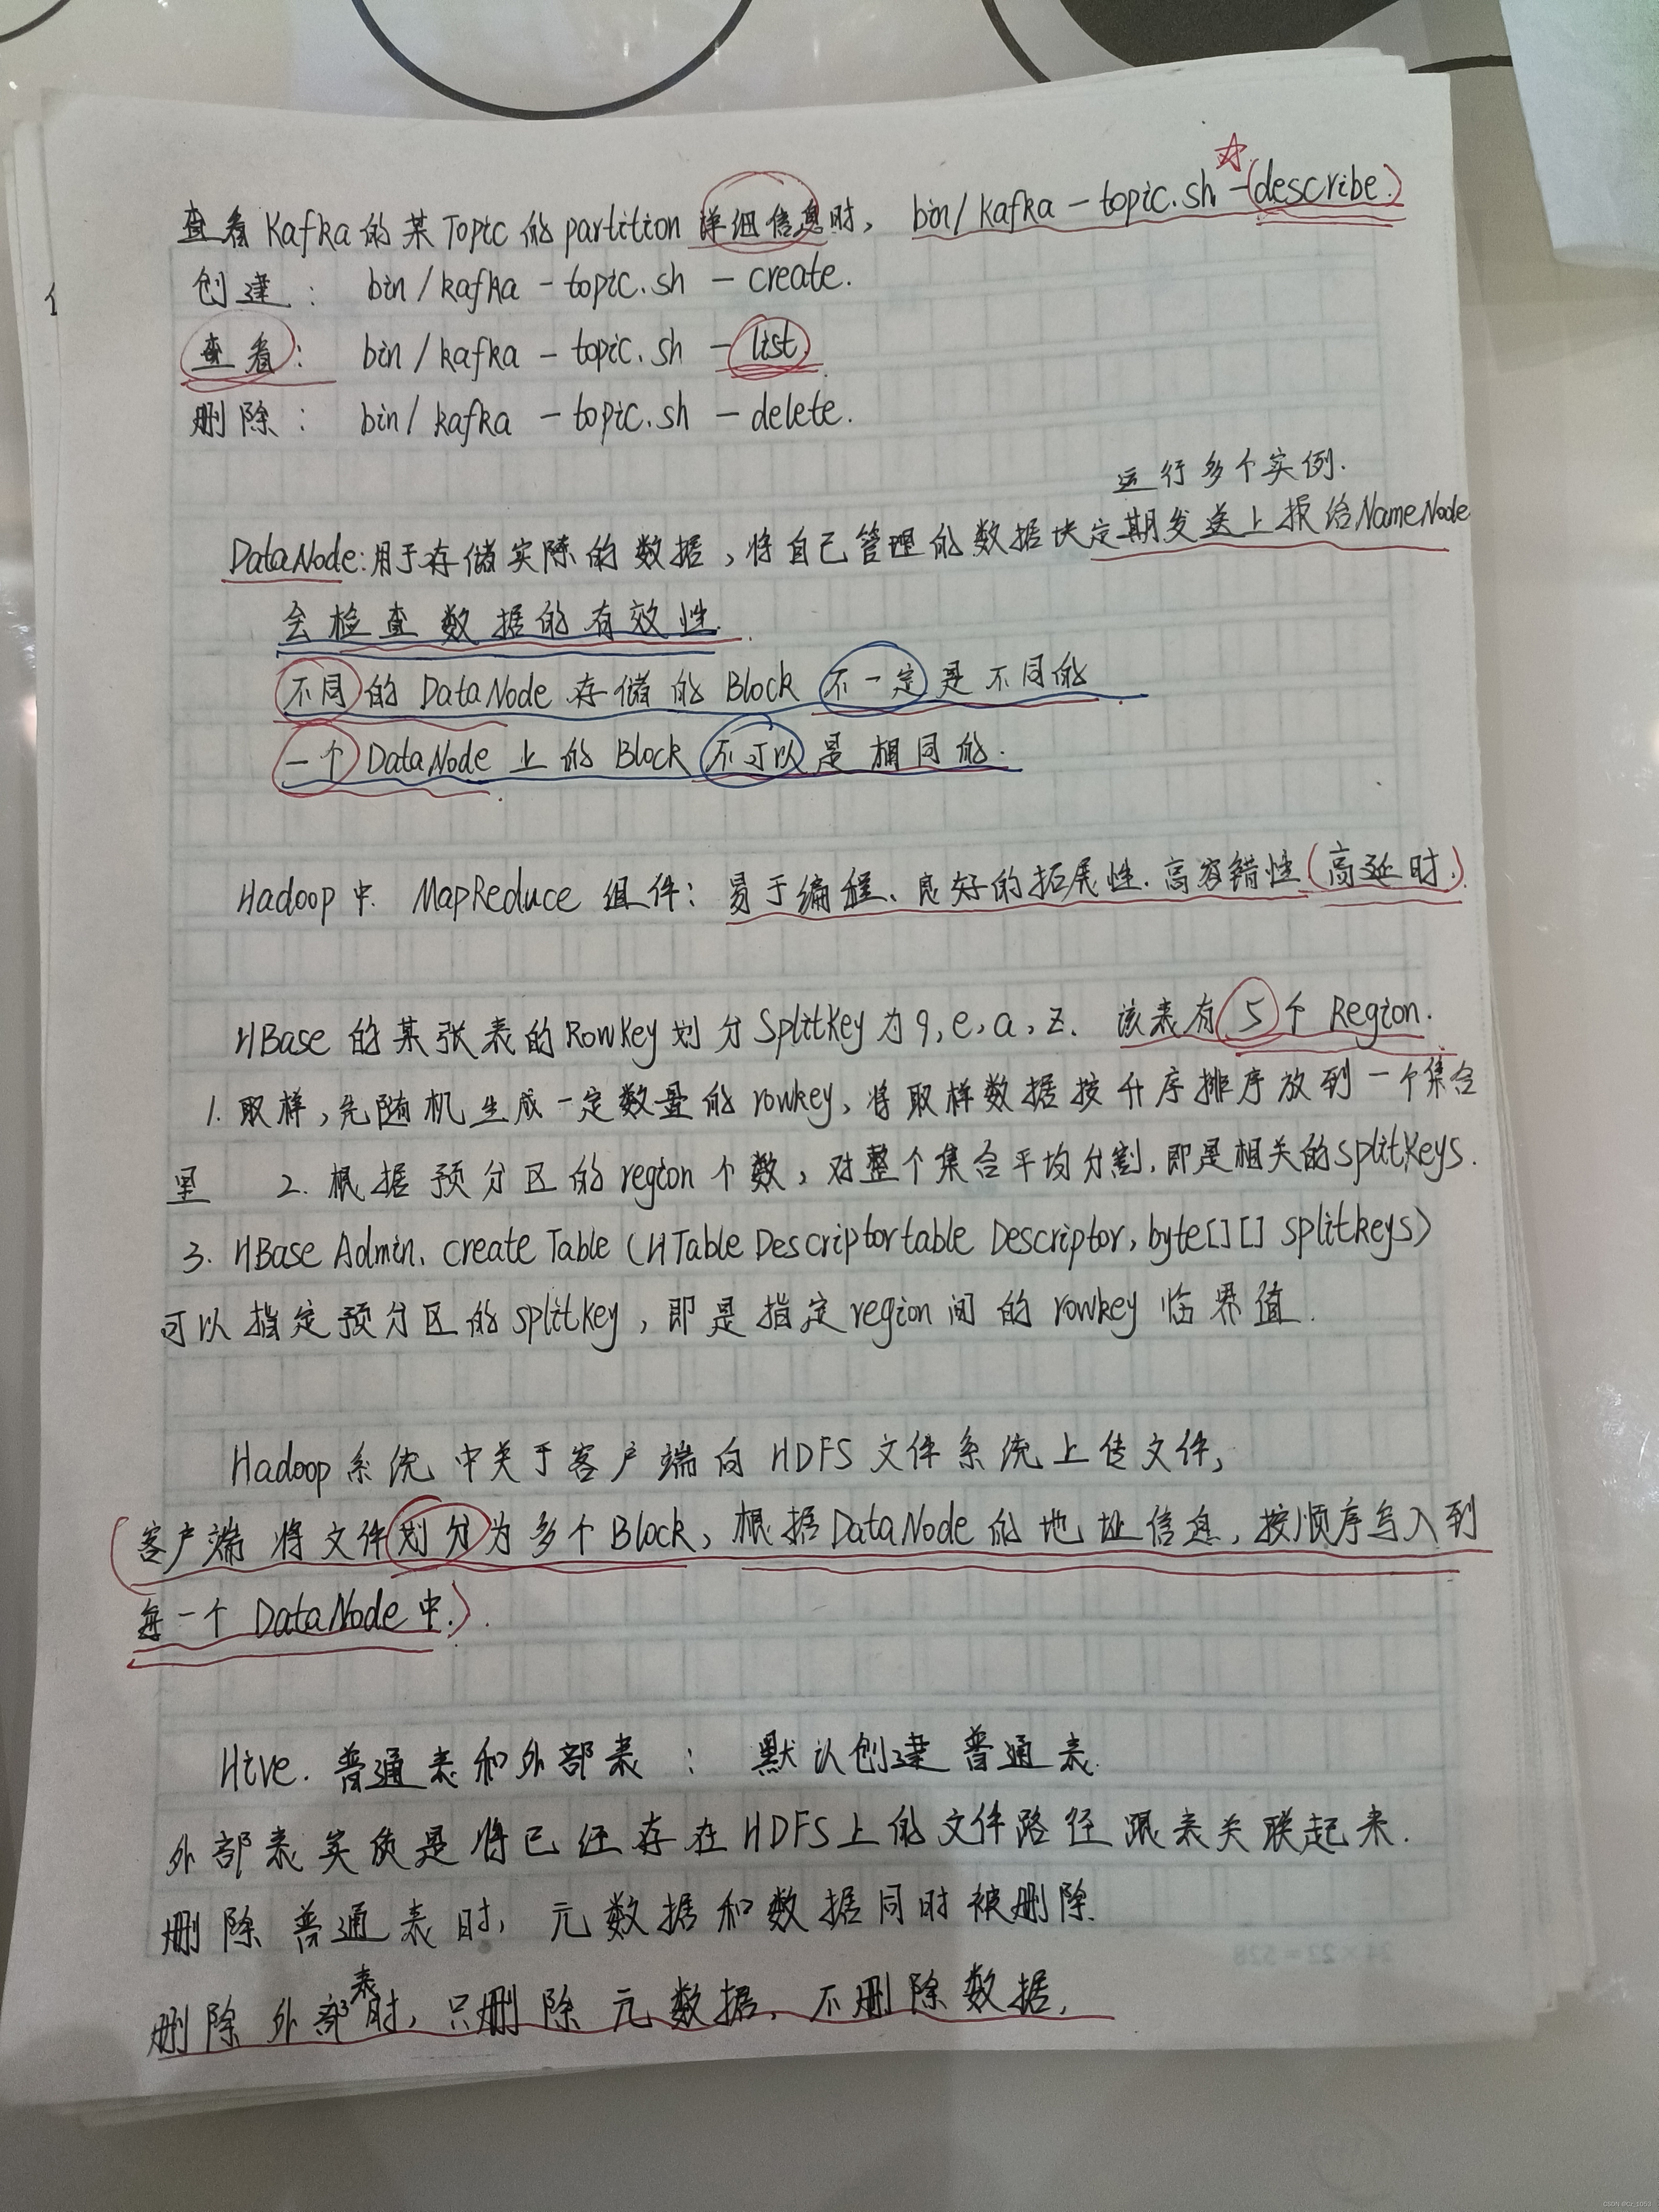 查看Kafka的某Topic的partition详细信息时, bin/kafka-topic.sh -(describe.)
创建: bin/kafka-topic.sh -create.
查看: bin/kafka-topic.sh -list.
删除: bin/kafka-topic.sh -delete.
运行多个实例.
DataNode:用于存储实际的数据,将自己管理的数据块定期发送上报给NameNode
会检查数据的有效性.
不同的DataNode存储的Block不一定是不同的.
一个DataNode上的Block不可以是相同的.
Hadoop中 MapReduce组件: 易于编程、良好的拓展性.高容错性(高延时.)
HBase的某张表的RowKey划分SplitKey为9,e,a,z. 该表有5个Region.
1.取样,先随机生成一定数量的rowkey,将取样数据按升序排序放到一个集合
里 2.根据预分区的region个数,对整个集合平均分割,即是相关的splitkeys.
3.HBase Admin. create Table (HTable Descriptortable Descriptor, byte[][] splitkeys)
可以指定预分区的splitkey,即是指定region间的rowkey临界值.
Hadoop系统中关于客户端向HDFS文件系统上传文件,
(客户端将文件划分为多个Block,根据DataNode的地址信息,按顺序写入到
每一个DataNode中.).
Hive.普通表和外部表: 默认创建普通表.
外部表实质是将已经存在HDFS上的文件路径跟表关联起来.
删除普通表时,元数据和数据同时被删除.
删除外部表时,只删除元数据,不删除数据,
24×22=528